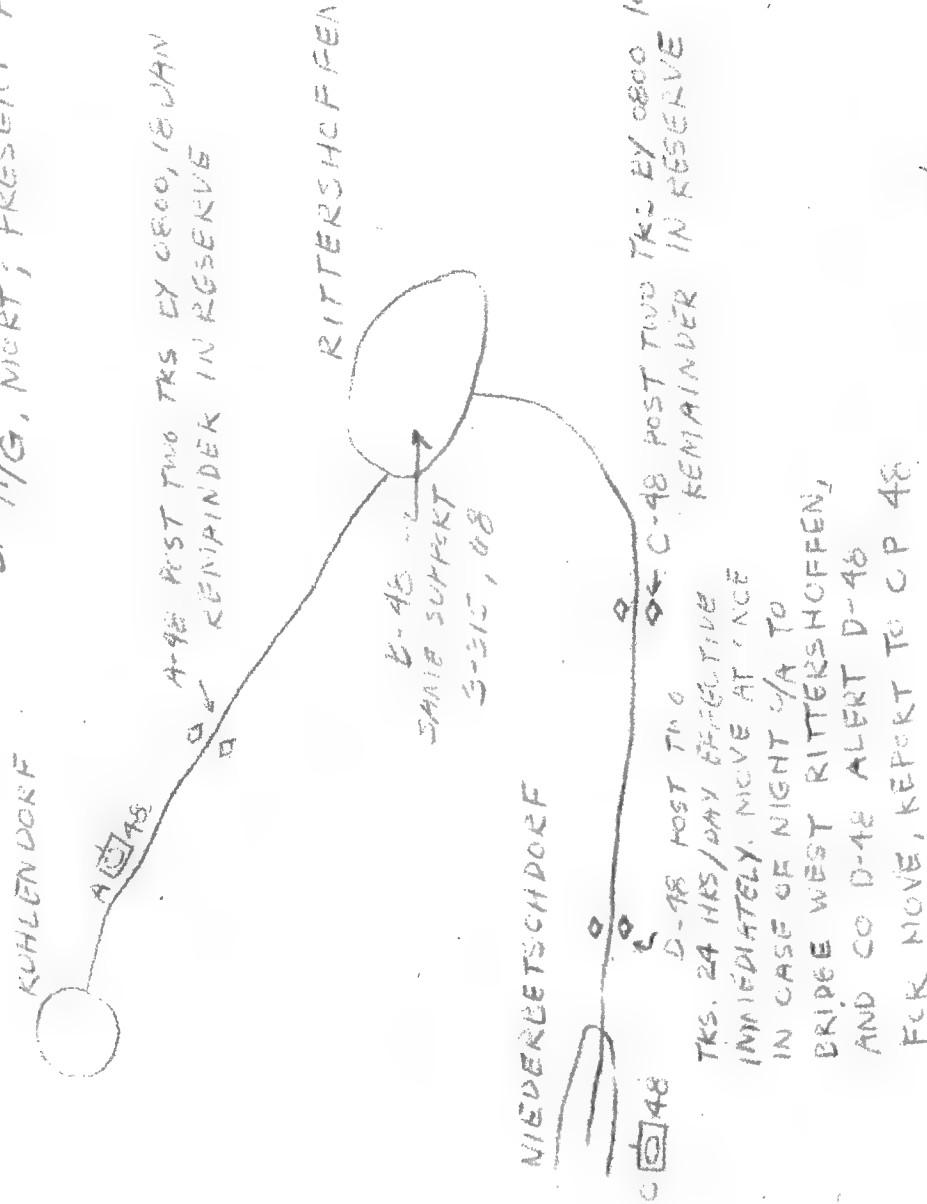 MORT; PRESENT
KUHLENDORF
A 48
A-48 POST TWO TKS BY 0800, 18 JAN
REMAINDER IN RESERVE
RITTERSHOFFEN
SAME SUPPORT
NIEDERBETSCHDORF
C 48
C-48 POST TWO TKS BY 0800
REMAINDER IN RESERVE
D-48 POST TWO
TKS. 24 HRS/DAY EFFECTIVE
IMMEDIATELY. MOVE AT ONCE
IN CASE OF NIGHT C/A TO
BRIDGE WEST RITTERSHOFFEN,
AND CO D-48 ALERT D-48
FOR MOVE, REPORT TO CP 48